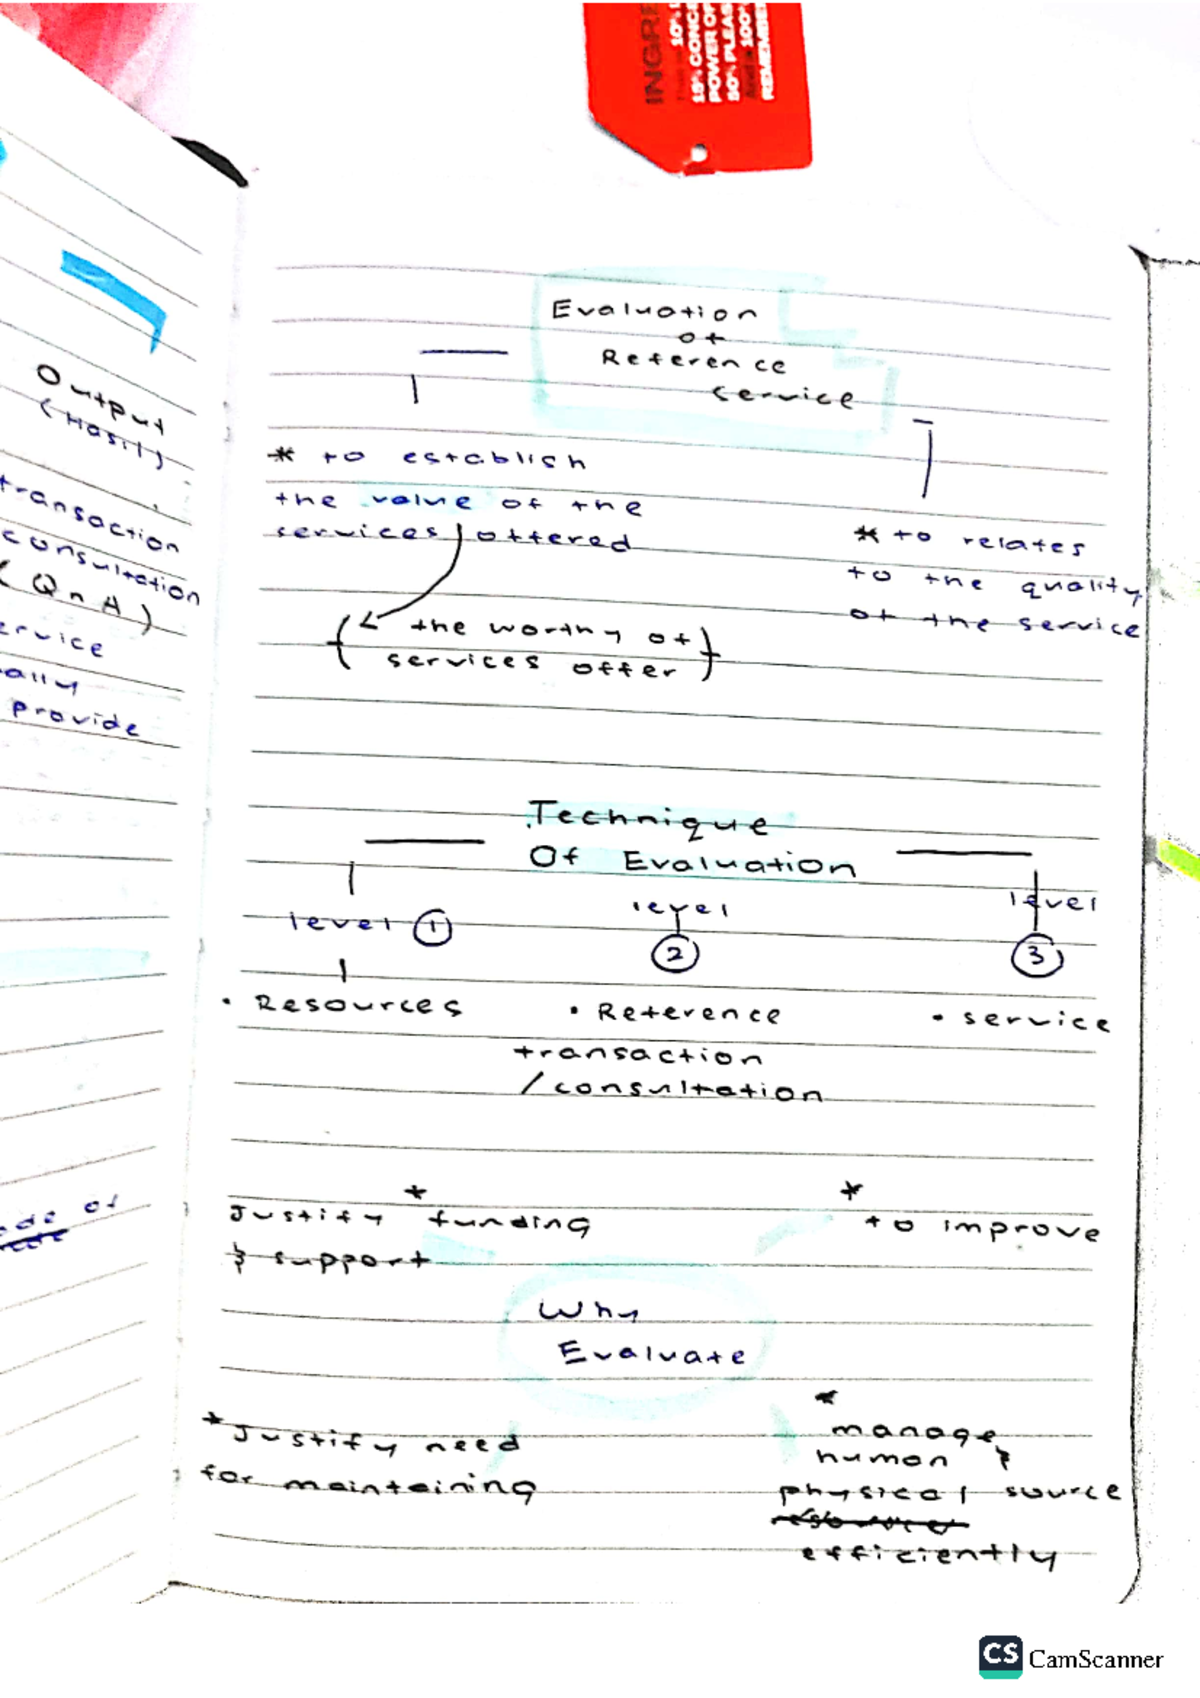 INGRE
10% L
15% CONCE
POWER OF
50% PLEAS
100%
REMEMBE
Output
(Hasil)
transaction
consultation
(QnA)
ervice
ally
provide
ode of
Evaluation
of
Reference
service
* to establish
the value of the
services offered
(the worthy of
services offer)
* to relates
to the quality
of the service
Technique
Of Evaluation
level 1
level
2
level
3
• Resources
• Reference
transaction
/consultation
• service
*
Justify funding
& support
*
to improve
Why
Evaluate
* Justify need
for maintaining
*
manage
human &
physical source
efficiently
CS CamScanner